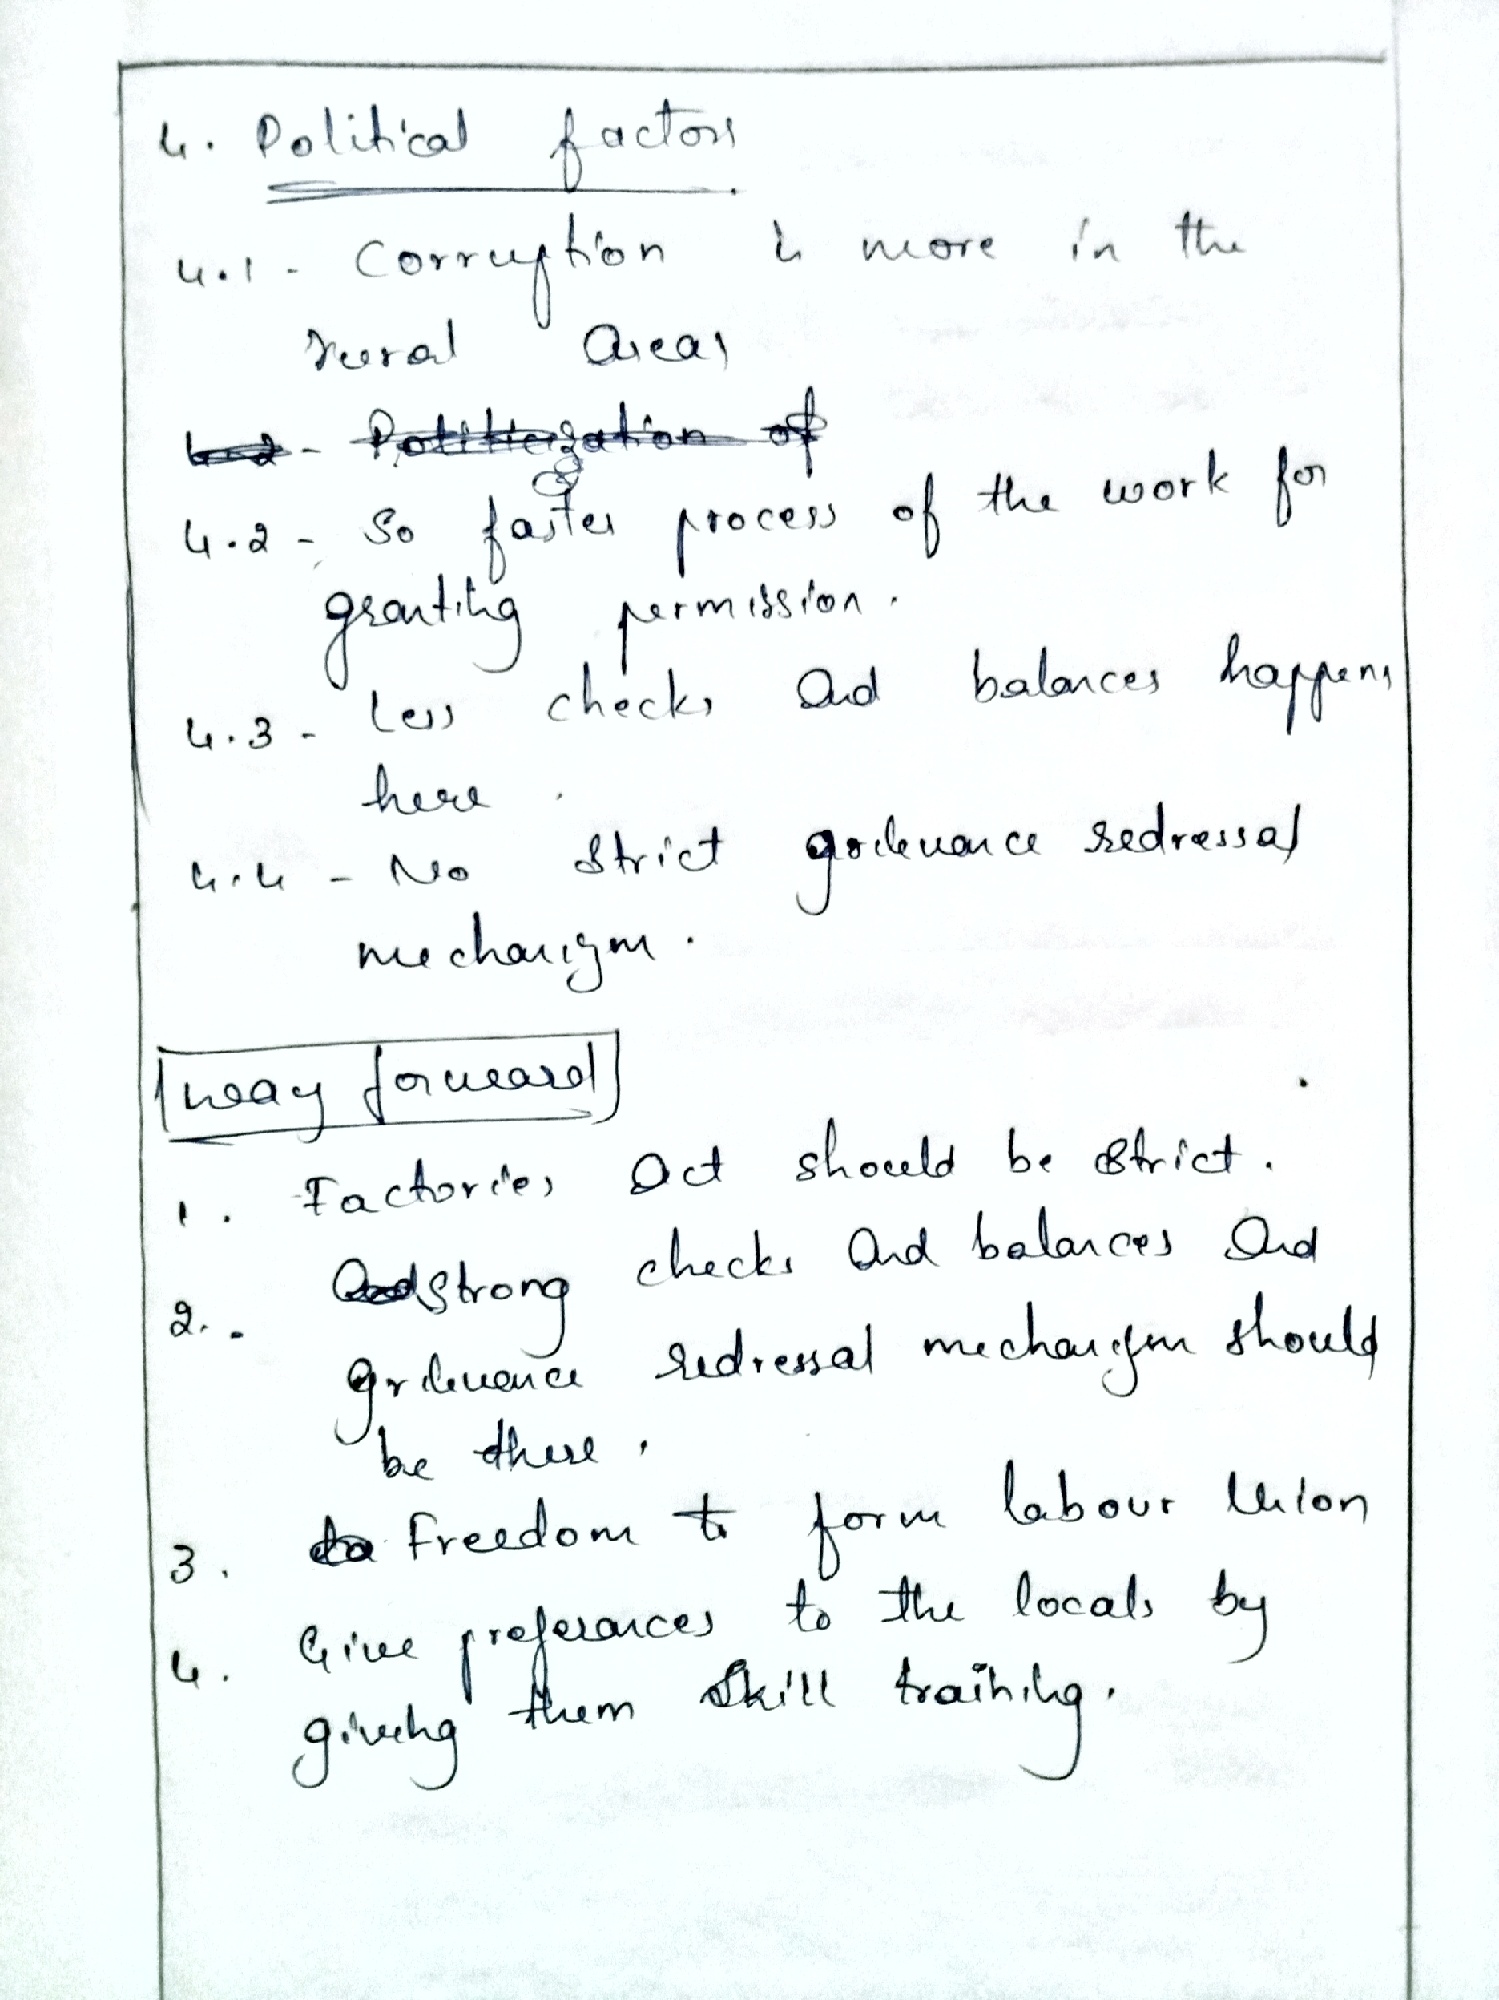 4. Political factors
4.1 - Corruption is more in the
rural areas
4.2 - Politicization of
4.2 - So faster process of the work for
granting permission.
4.3 - Less checks and balances happens
here.
4.4 - No strict grievance redressal
mechanism.
Way forward
1. Factories Act should be strict.
2. - Strong checks and balances and
grievance redressal mechanism should
be there.
3. Freedom to form labour Union
4. Give preferances to the locals by
giving them skill training.